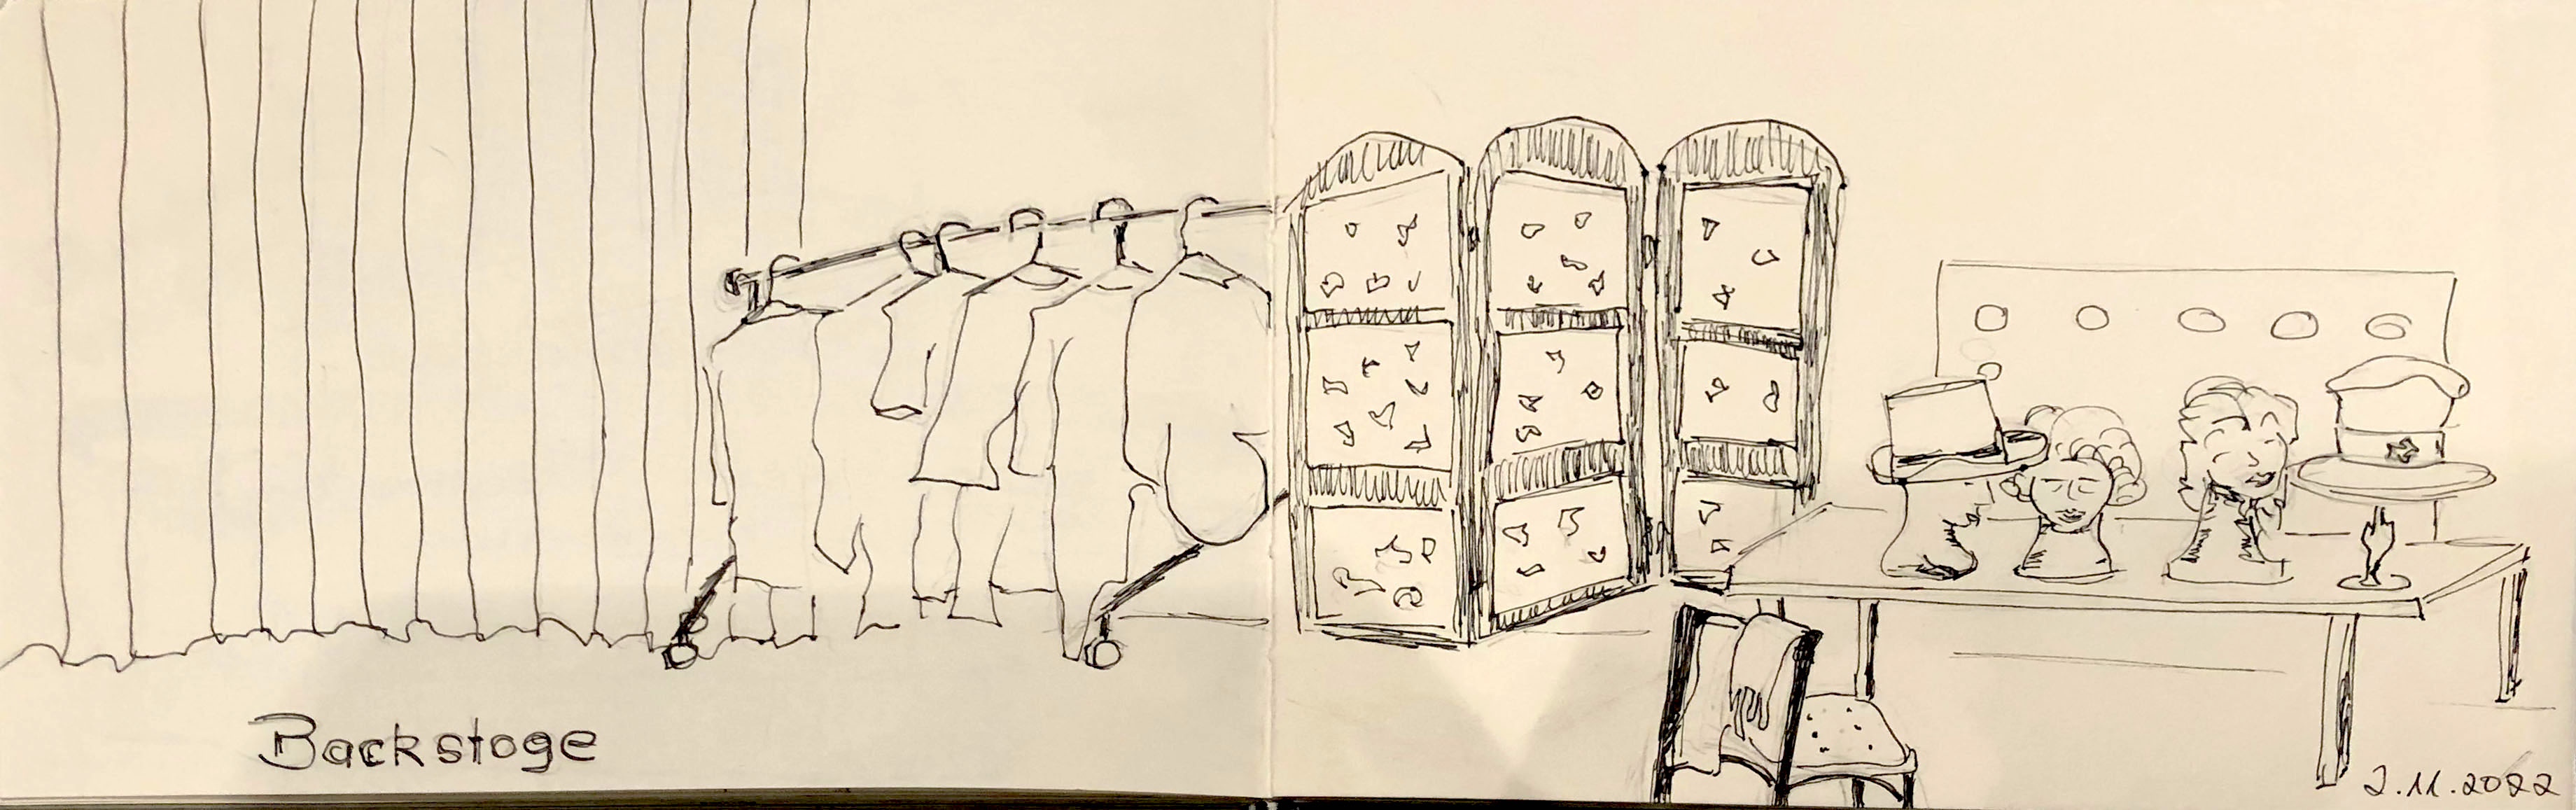 Backstage
2.11.2022